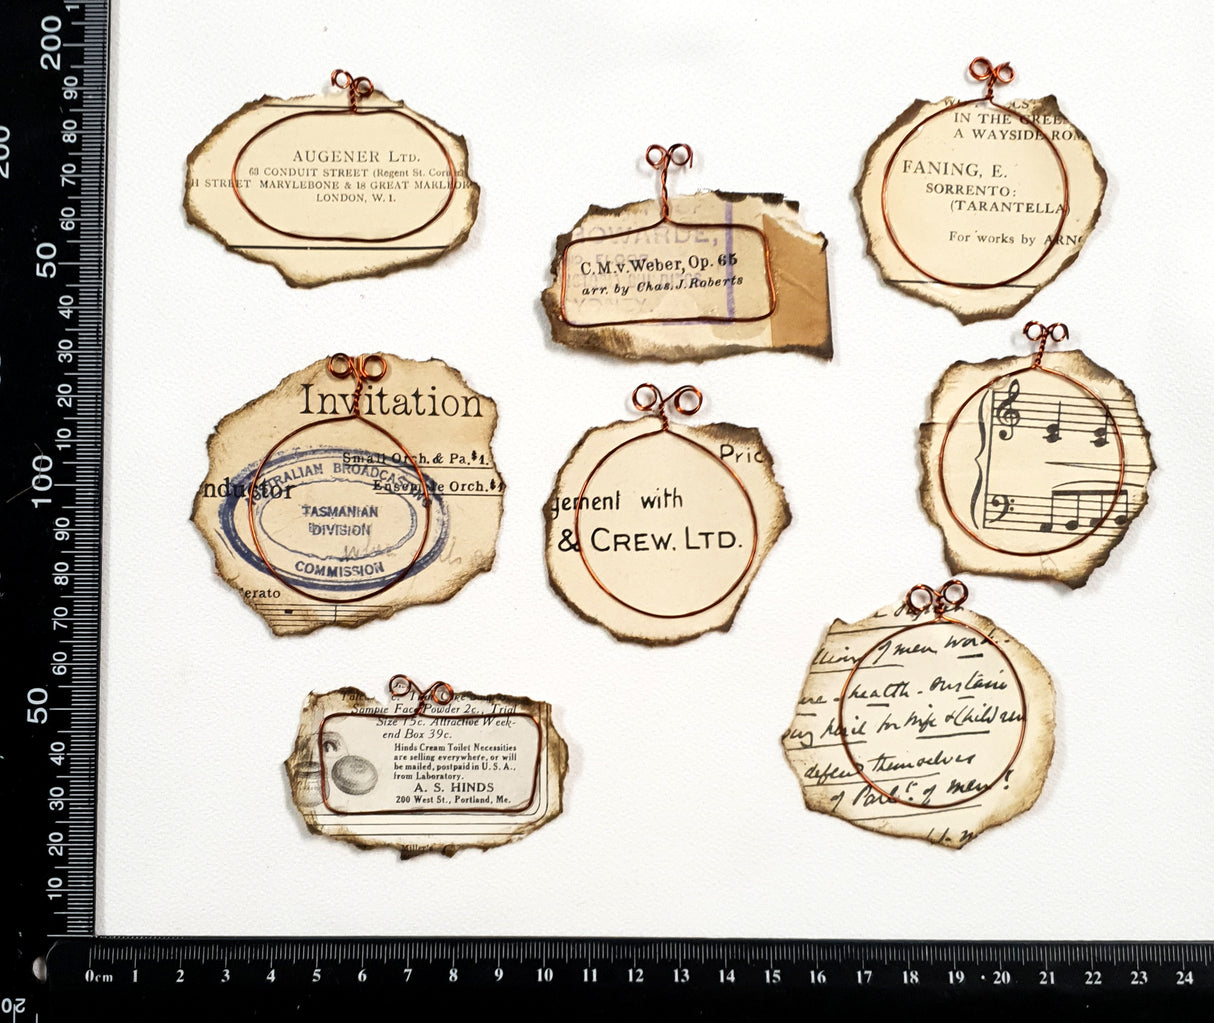 AUGENER LTD.
63 CONDUIT STREET (Regent St. Corn
H STREET MARYLEBONE & 18 GREAT MARLBOR
LONDON, W. 1.
IN THE GREE
A WAYSIDE ROM
FANING, E.
SORRENTO:
(TARANTELLA
For works by ARN
OWARDE,
SYDNEY
C.M.v.Weber, Op. 65
arr. by Chas. J. Roberts
Invitation
Small Orch. & Pa. $1.
Ensemble Orch. $
nductor
TRALIAN BROADCASTING
TASMANIAN
DIVISION
COMMISSION
erato
Pric
gement with
& CREW. LTD.
of men work
health - sustain
for wife & children
defend themselves
of Parlt. of men?
Sample Face Powder 2c., Trial
Size 15c. Attractive Week-
end Box 39c.
Hinds Cream Toilet Necessities
are selling everywhere, or will
be mailed, postpaid in U. S. A.,
from Laboratory.
A. S. HINDS
200 West St., Portland, Me.
200
90
80
70
60
50
40
30
20
10
100
90
80
70
60
50
40
30
20
10
0cm 1 2 3 4 5 6 7 8 9 10 11 12 13 14 15 16 17 18 19 20 21 22 23 24